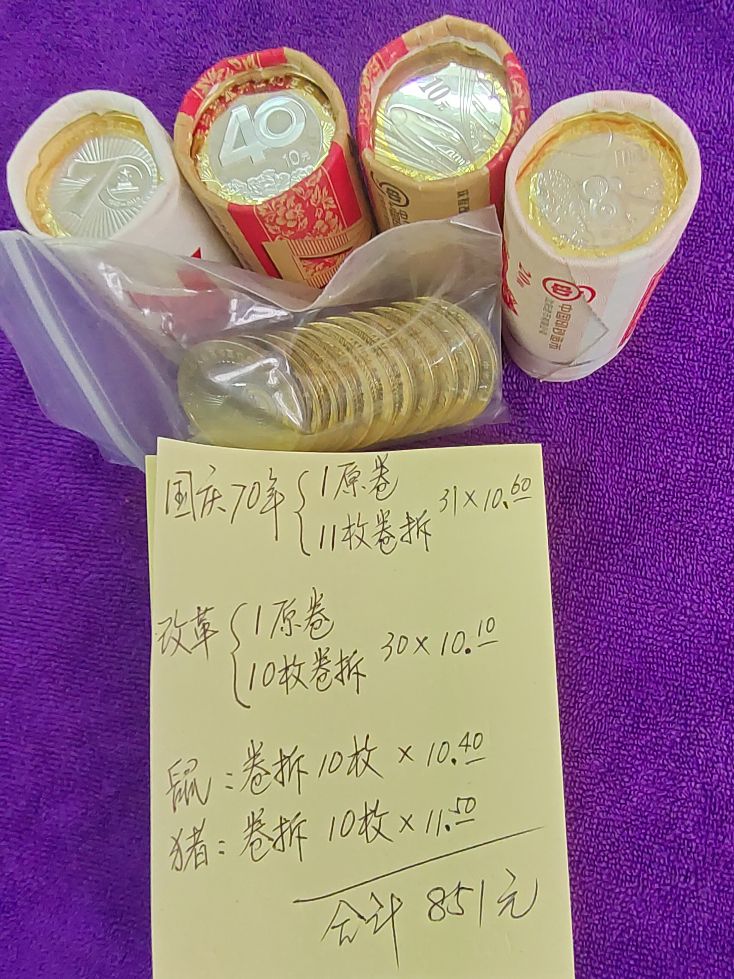 70
40
10元
10元
中国印钞造币
国庆70年 { 1原卷
11枚卷拆 31×10.60
改革 { 1原卷
10枚卷拆 30×10.10
鼠：卷拆10枚×10.40
猪：卷拆10枚×11.50
合计 851元